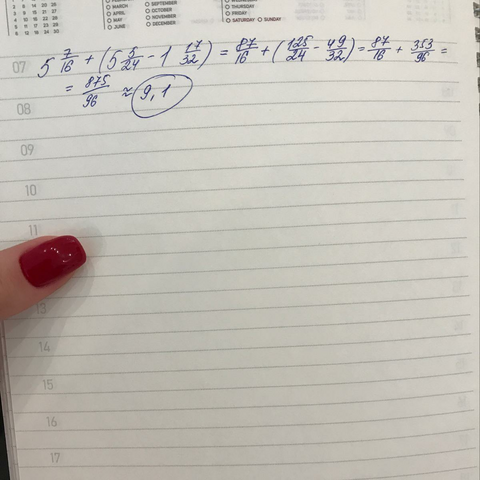 MARCH
APRIL
MAY
JUNE
SEPTEMBER
OCTOBER
NOVEMBER
DECEMBER
THURSDAY
FRIDAY
SATURDAY SUNDAY
07 5 7/16 + (5 5/24 - 1 17/32) = 87/16 + (125/24 - 49/32) = 87/16 + 353/96 =
= 875/96 ≈ 9,1
08
09
10
11
13
14
15
16
17